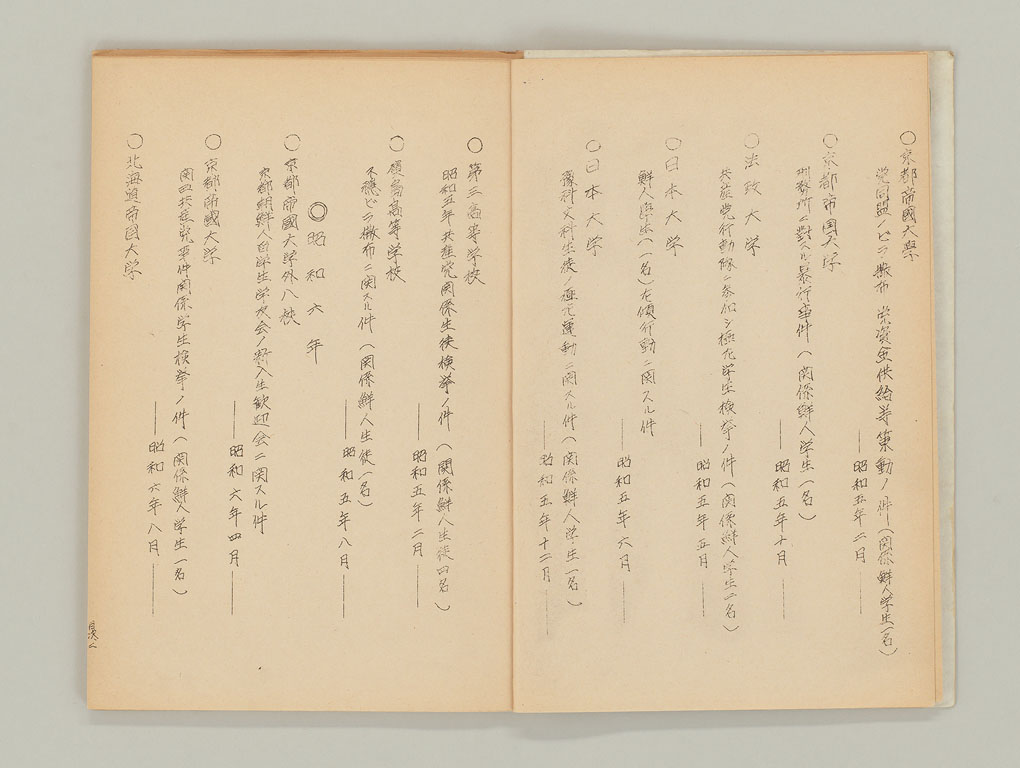 ○京都帝國大學
党同盟ノビラ撒布 党資金供給等策動ノ件(関係鮮人学生一名)
――昭和五年二月――
○京都帝国大学
刑務所ニ對スル暴行事件(関係鮮人学生一名)
――昭和五年十月――
○法政大学
共産党行動隊ニ参加シ極左学生検挙ノ件(関係鮮人学生二名)
――昭和五年五月――
○日本大学
鮮人学生(一名)左傾行動ニ関スル件
――昭和五年六月――
○日本大学
豫科文科生徒ノ極左運動ニ関スル件(関係鮮人学生一名)
――昭和五年十二月――
○第三高等学校
昭和五年共産党関係生徒検挙ノ件(関係鮮人生徒四名)
――昭和五年二月――
○廣島高等学校
不穏ビラ撒布ニ関スル件(関係鮮人生徒一名)
――昭和五年八月――
◎昭和六年
○京都帝國大学外八校
京都朝鮮人留学生学友会ノ新入生歓迎会ニ関スル件
――昭和六年四月――
○京都帝國大学
関西共産党事件関係学生検挙ノ件(関係鮮人学生一名)
――昭和六年八月――
○北海道帝国大学